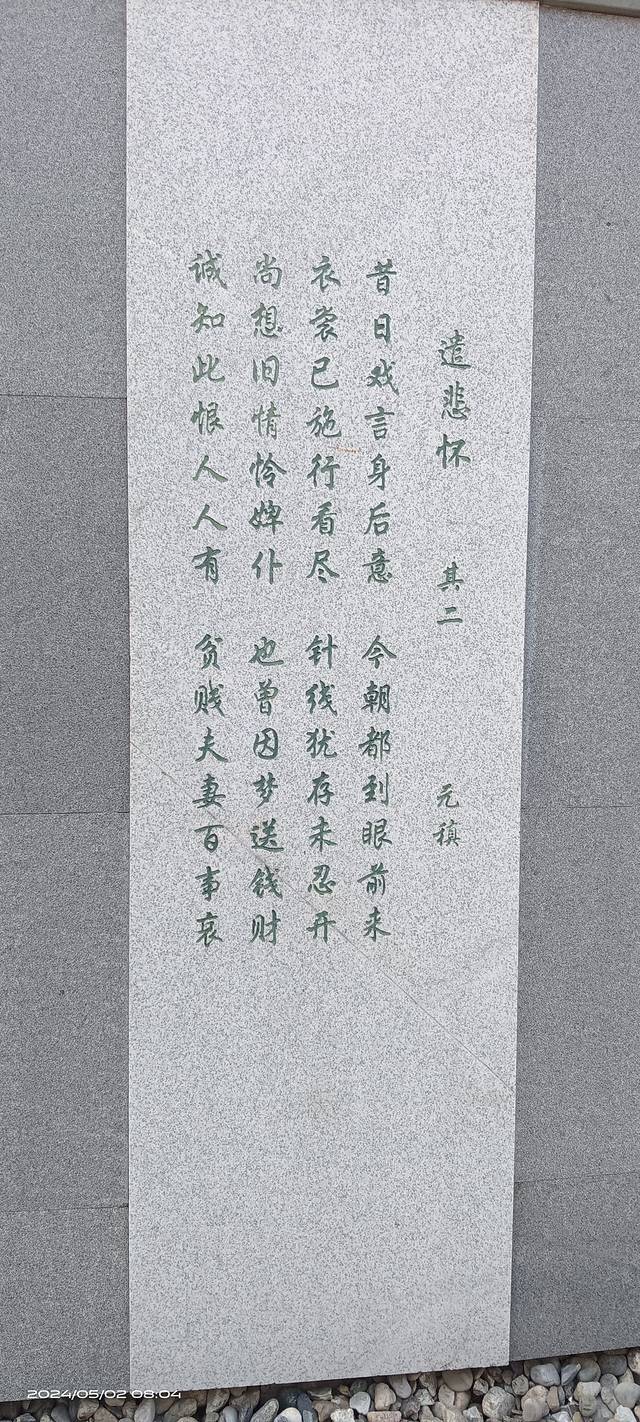 遣悲怀 其二 元稹
昔日戏言身后意 今朝都到眼前来
衣裳已施行看尽 针线犹存未忍开
尚想旧情怜婢仆 也曾因梦送钱财
诚知此恨人人有 贫贱夫妻百事哀
2024/05/02 08:04